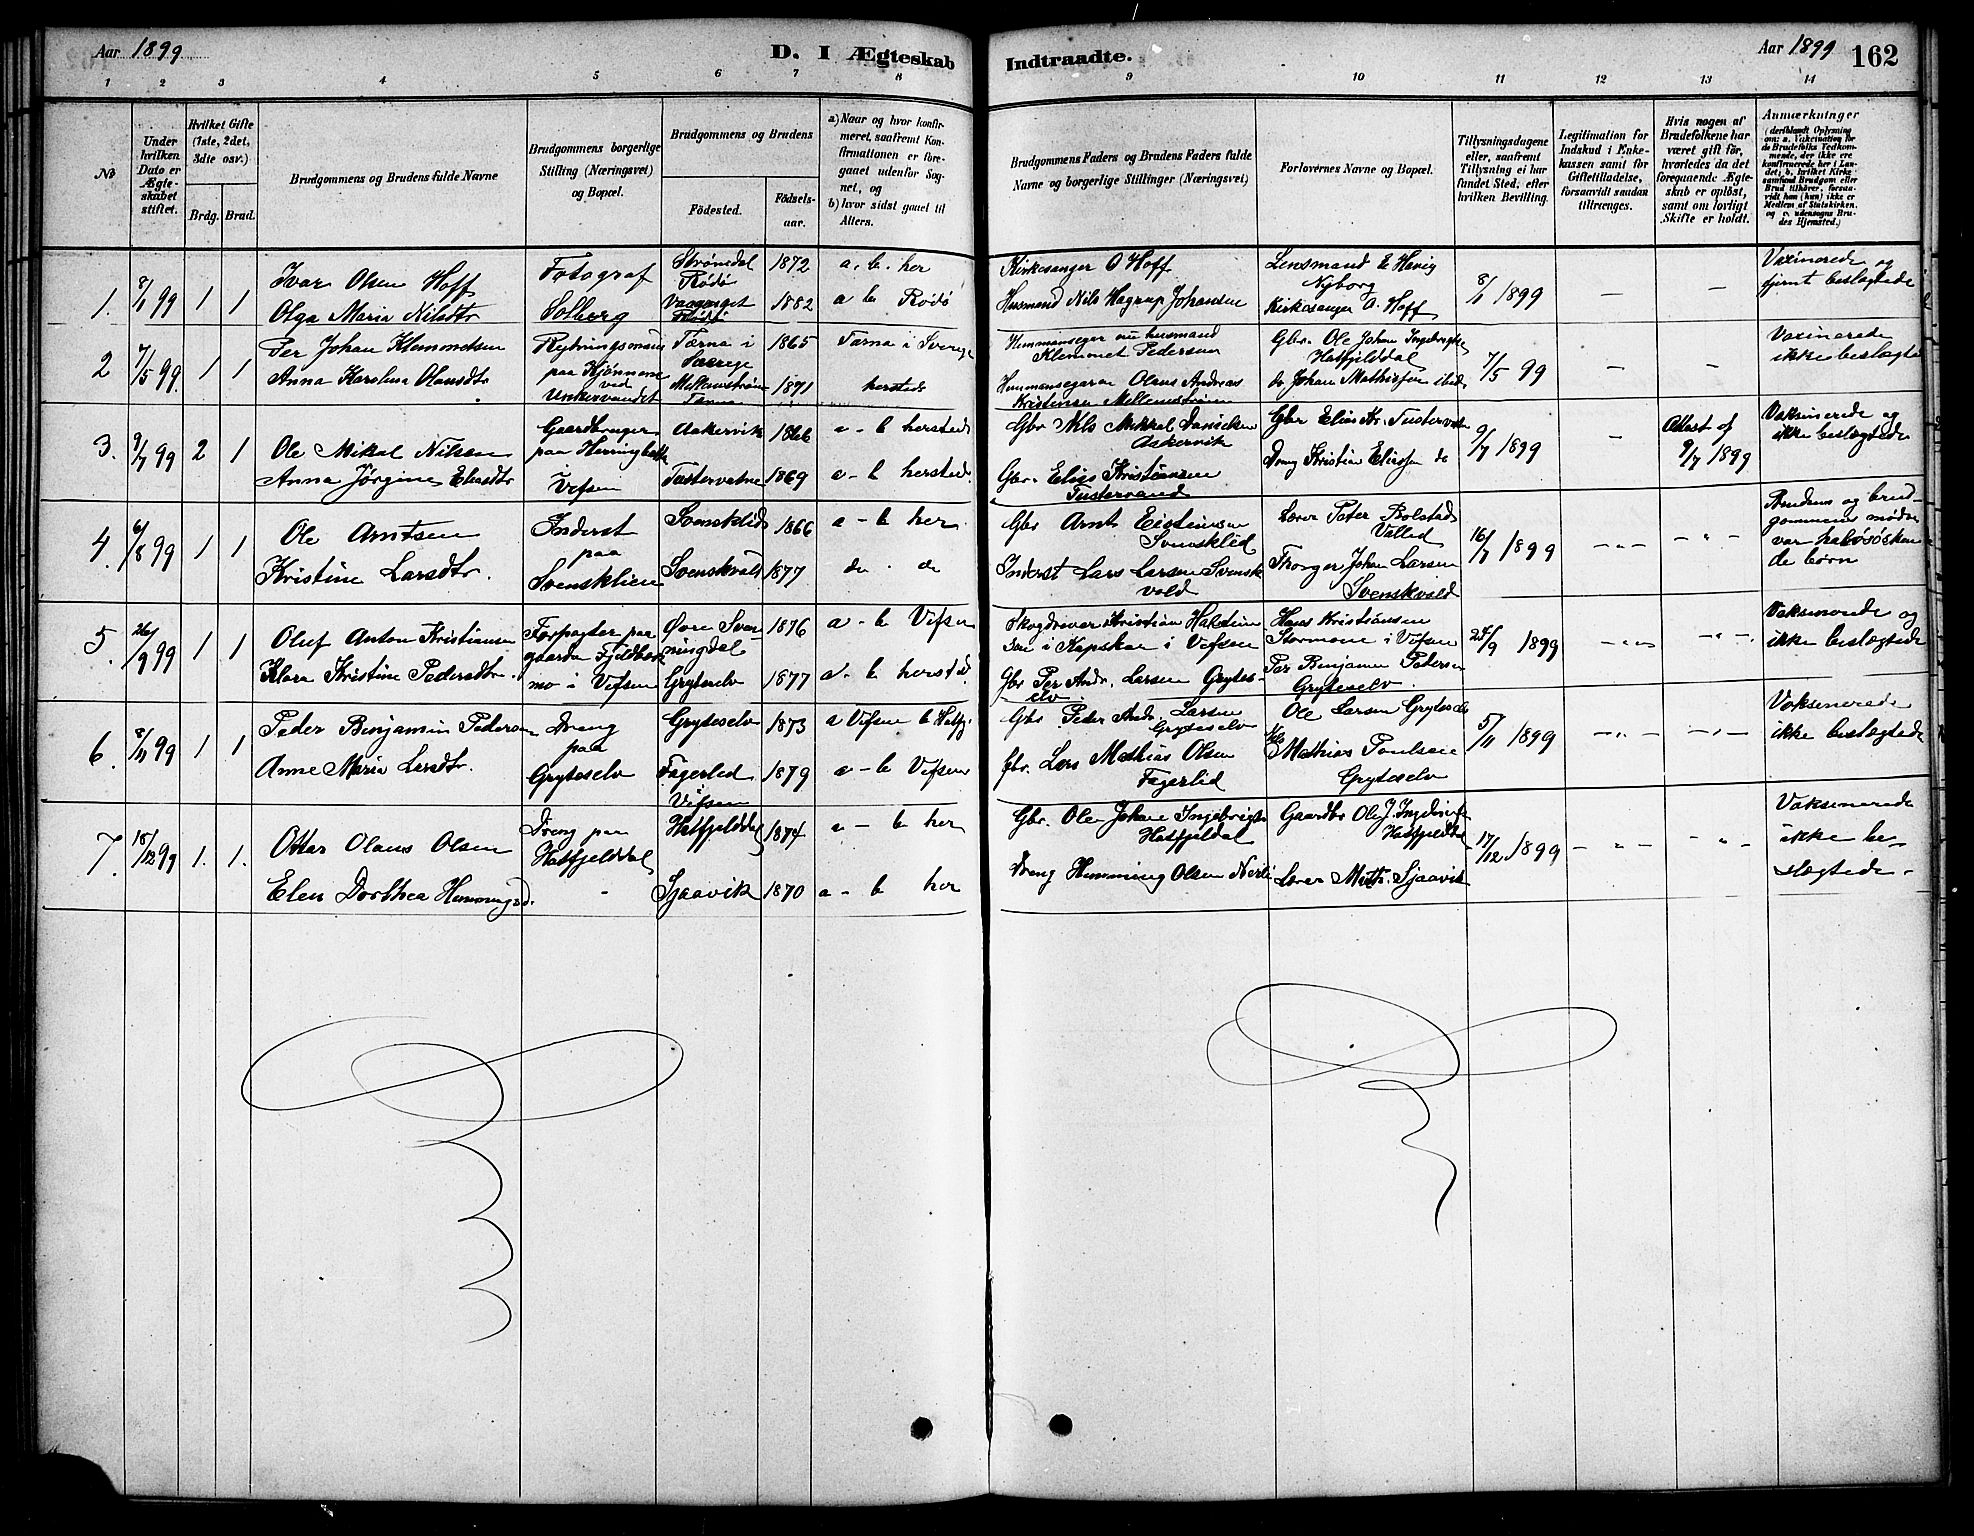 Aar 1899
D. I Ægteskab
Indtraadte.
Aar 1899
162
1 2 3 4 5 6 7 8 9 10 11 12 13 14
No
Under
hvilken
Dato er
Ægte-
skabet
stiftet.
Hvilket Gifte
(1ste, 2det,
3die osv.)
Brdg. Brud.
Brudgommens og Brudens fulde Navne
Brudgommens borgerlige
Stilling (Næringsvei)
og Bopæl.
Brudgommens og Brudens
Fødested.
Fødsels-
aar.
a) Naar og hvor konfir-
meret, saafremt Kon-
firmationen er fore-
gaaet udenfor Sog-
net, og
b) hvor sidst gaaet til
Alters.
Brudgommens Faders og Brudens Faders fulde
Navne og borgerlige Stillinger (Næringsvei)
Forlovernes Navne og Bopæl.
Tillysningsdagene
eller, saafremt
Tillysning ei har
fundet Sted, efter
hvilken Bevilling.
Legitimation for
Indskud i Enke-
kassen samt for
Giftetilladelse,
forsaavidt saadan
tiltrænges.
Hvis nogen af
Brudefolkene har
været gift før,
hvorledes da det
foregaaende Ægte-
skab er opløst,
samt om lovligt
Skifte er holdt.
Anmærkninger
(deriblandt Oplysning
om: a. Vakcination for
de Brudefolks Vedkom-
mende, der ikke ere
konfirmerede her i Lan-
det; b. hvilket Kirke-
samfund Brudgom eller
Brud tilhører, forsaa-
vidt han (hun) ikke er
Medlem af Statskirken,
og c. udensogns Bru-
des Hjemsted.)
1. 8/1 99 1 1
Ivar Olsen Hoff
Olga Maria Nilsdtr
Fotograf
Solberg
Strømdal
Rødø
1872
Vaagaget
Rødø
1882
a. b. her
a b Rødø
Kirkesanger O Hoff
Husmand Nils Hagrup Johansen
Lensmand E Havig
Nyborg
Kirkesanger O. Hoff
8/1 1899
—
—
Vaxinerede og
fjernt beslægtede
2 7/5 99. 1 1
Per Johan Klemmetsen
Anna Karolina Olausdtr
Rydningsmand
paa Kjønnene
ved
Unkervandet
Tærna i
Sverige
1865
Mellanstrøm
Tærna
1871
Tærna i Sverige
hersteds
Hemmanseger nu husmand
Klemmet Pedersen
Hemmansegeren Olaus Andreas
Kristensen Mellemstrøm
Gbr. Ole Johan Ingebrigtse
Hatfjelddal
do Johan Mathissen ibid
7/5 99
—
—
Vaxinerede
ikke beslægtede
3. 9/7 99 2 1
Ole Mikal Nilsen
Anna Jørgine Eliasdtr
Gaardbruger
paa Herringbotn
i Vefsen
Aakervik
1866
Tustervatne
1869
a - b hersteds
a - b hersteds
Gbr Nils Mikkal Danielsen
Aakervik
Gbr. Elias Kristiansen
Tustervand
Gbr Elias Kr. Tustervatn
Dreng Kristian Eliassen do
9/7 1899
—
Attest af
9/7 1899
Vaksinerede og
ikke beslægtede
4. 6/8 99 1 1
Ole Arntsen
Kristine Larsdtr.
Inderst
paa
Svensklien
Svensklid
1866
Svenskvald
1877
a - b her
do . do
Gbr Arnt Eistensen
Svensklid
Inderst Lars Larsen Svensk
vold
Lærer Peter Bolstad
Vallid
Thorger Johan Larsen
Svenskvold
16/7 1899
— " —
— " —
Brudens og brud-
gommens mødre
var halvsøsken-
de børn
5. 26/9 99 1 1
Oluf Anton Kristiansen
Klara Kristine Pedersdtr.
Forpagter paa
gaarden Fjeldbæk
mo i Vefsen
Øvre Sven
ningdal
1876
Gryteselv
1877
a - b Vefsen
a - b hersted.
Skogdrever Kristian Halstein
sen i Kapskar i Vefsen
Gbr Per Andr. Larsen Grytes-
elv
Hans Kristiansen
Stormoen i Vefsen
Per Benjamin Pedersen
Gryteselv.
24/9 1899
— " —
— " —
Vaksinerede og
ikke beslægtede
6. 8/11 99 1 1
Peder Benjamin Pedersen
Anne Maria Larsdtr.
Dreng
paa
Gryteselv
Gryteselv
1873
Fagerlid
Vefsen
1879
a Vefsen b Hatfj.
a - b Vefsen
Gbr Peder Andr. Larsen
Gryteselv
Gbr. Lars Mathias Olsen
Fagerlid
Ole Larsen Gryteselv
Mathias Paulsen
Gryteselv
5/11 1899
— " —
— " —
Vaksinerede
ikke beslægtede
7. 18/12 99 1. 1.
Ottar Olaus Olsen
Elen Dorthea Hemmingsd.
Dreng paa
Hatfjelddal
"
Hatfjelddal
1874
Sjaavik
1870
a - b her
a - b her
Gbr. Ole Johan Ingebrigts
Hatfjeldal
Dreng Hemming Olsen Nerli
Gaardbr Ole J. Ingebrigts
Hatfjelddal
Lærer Math. Sjaavik
17/12 1899
— " —
— " —
Vaksinerede
ikke be-
slægtede.